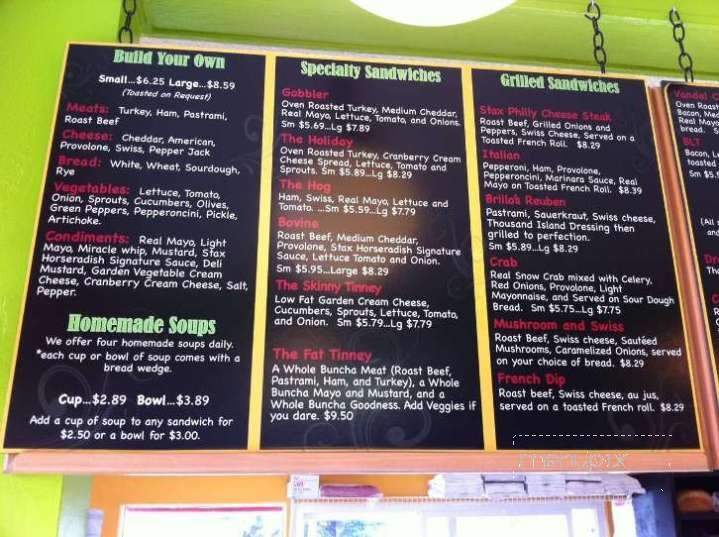 Build Your Own
Small...$6.25 Large...$8.59
(Toasted on Request)
Meats: Turkey, Ham, Pastrami,
Roast Beef
Cheese: Cheddar, American,
Provolone, Swiss, Pepper Jack
Bread: White, Wheat, Sourdough,
Rye
Vegetables: Lettuce, Tomato,
Onion, Sprouts, Cucumbers, Olives,
Green Peppers, Pepperoncini, Pickle,
Artichoke.
Condiments: Real Mayo, Light
Mayo, Miracle whip, Mustard, Stax
Horseradish Signature Sauce, Deli
Mustard, Garden Vegetable Cream
Cheese, Cranberry Cream Cheese, Salt,
Pepper.
Homemade Soups
We offer four homemade soups daily.
*each cup or bowl of soup comes with a
bread wedge.
Cup...$2.89 Bowl...$3.89
Add a cup of soup to any sandwich for
$2.50 or a bowl for $3.00.
Specialty Sandwiches
Gobbler
Oven Roasted Turkey, Medium Cheddar,
Real Mayo, Lettuce, Tomato, and Onions.
Sm $5.69...Lg $7.89
The Holiday
Oven Roasted Turkey, Cranberry Cream
Cheese Spread, Lettuce, Tomato and
Sprouts. Sm $5.89...Lg $8.29
The Hog
Ham, Swiss, Real Mayo, Lettuce and
Tomato. ...Sm $5.59...Lg $7.79
Bovine
Roast Beef, Medium Cheddar,
Provolone, Stax Horseradish Signature
Sauce, Lettuce Tomato and Onion.
Sm $5.95...Large $8.29
The Skinny Tinney
Low Fat Garden Cream Cheese,
Cucumbers, Sprouts, Lettuce, Tomato,
and Onion. Sm $5.79...Lg $7.79
The Fat Tinney
A Whole Buncha Meat (Roast Beef,
Pastrami, Ham, and Turkey), a Whole
Buncha Mayo and Mustard, and a
Whole Buncha Goodness. Add Veggies if
you dare. $9.50
Grilled Sandwiches
Stax Philly Cheese Steak
Roast Beef, Grilled Onions and
Peppers, Swiss Cheese, Served on a
Toasted French Roll. $8.29
Italian
Pepperoni, Ham, Provolone,
Pepperoncini, Marinara Sauce, Real
Mayo on Toasted French Roll. $8.39
Brilla's Reuben
Pastrami, Sauerkraut, Swiss cheese,
Thousand Island Dressing then
grilled to perfection.
Sm $5.89...Lg $8.29
Crab
Real Snow Crab mixed with Celery,
Red Onions, Provolone, Light
Mayonnaise, and Served on Sour Dough
Bread. Sm $5.75...Lg $7.75
Mushroom and Swiss
Roast Beef, Swiss cheese, Sautéed
Mushrooms, Caramelized Onions, served
on your choice of bread. $8.29
French Dip
Roast beef, Swiss cheese, au jus,
served on a toasted French roll. $8.29
Vandal
Oven Roast
Bacon, Med
Real Mayo
bread.
BLT
Bacon, L
toasted
Sm $5.
(All
and
menupix